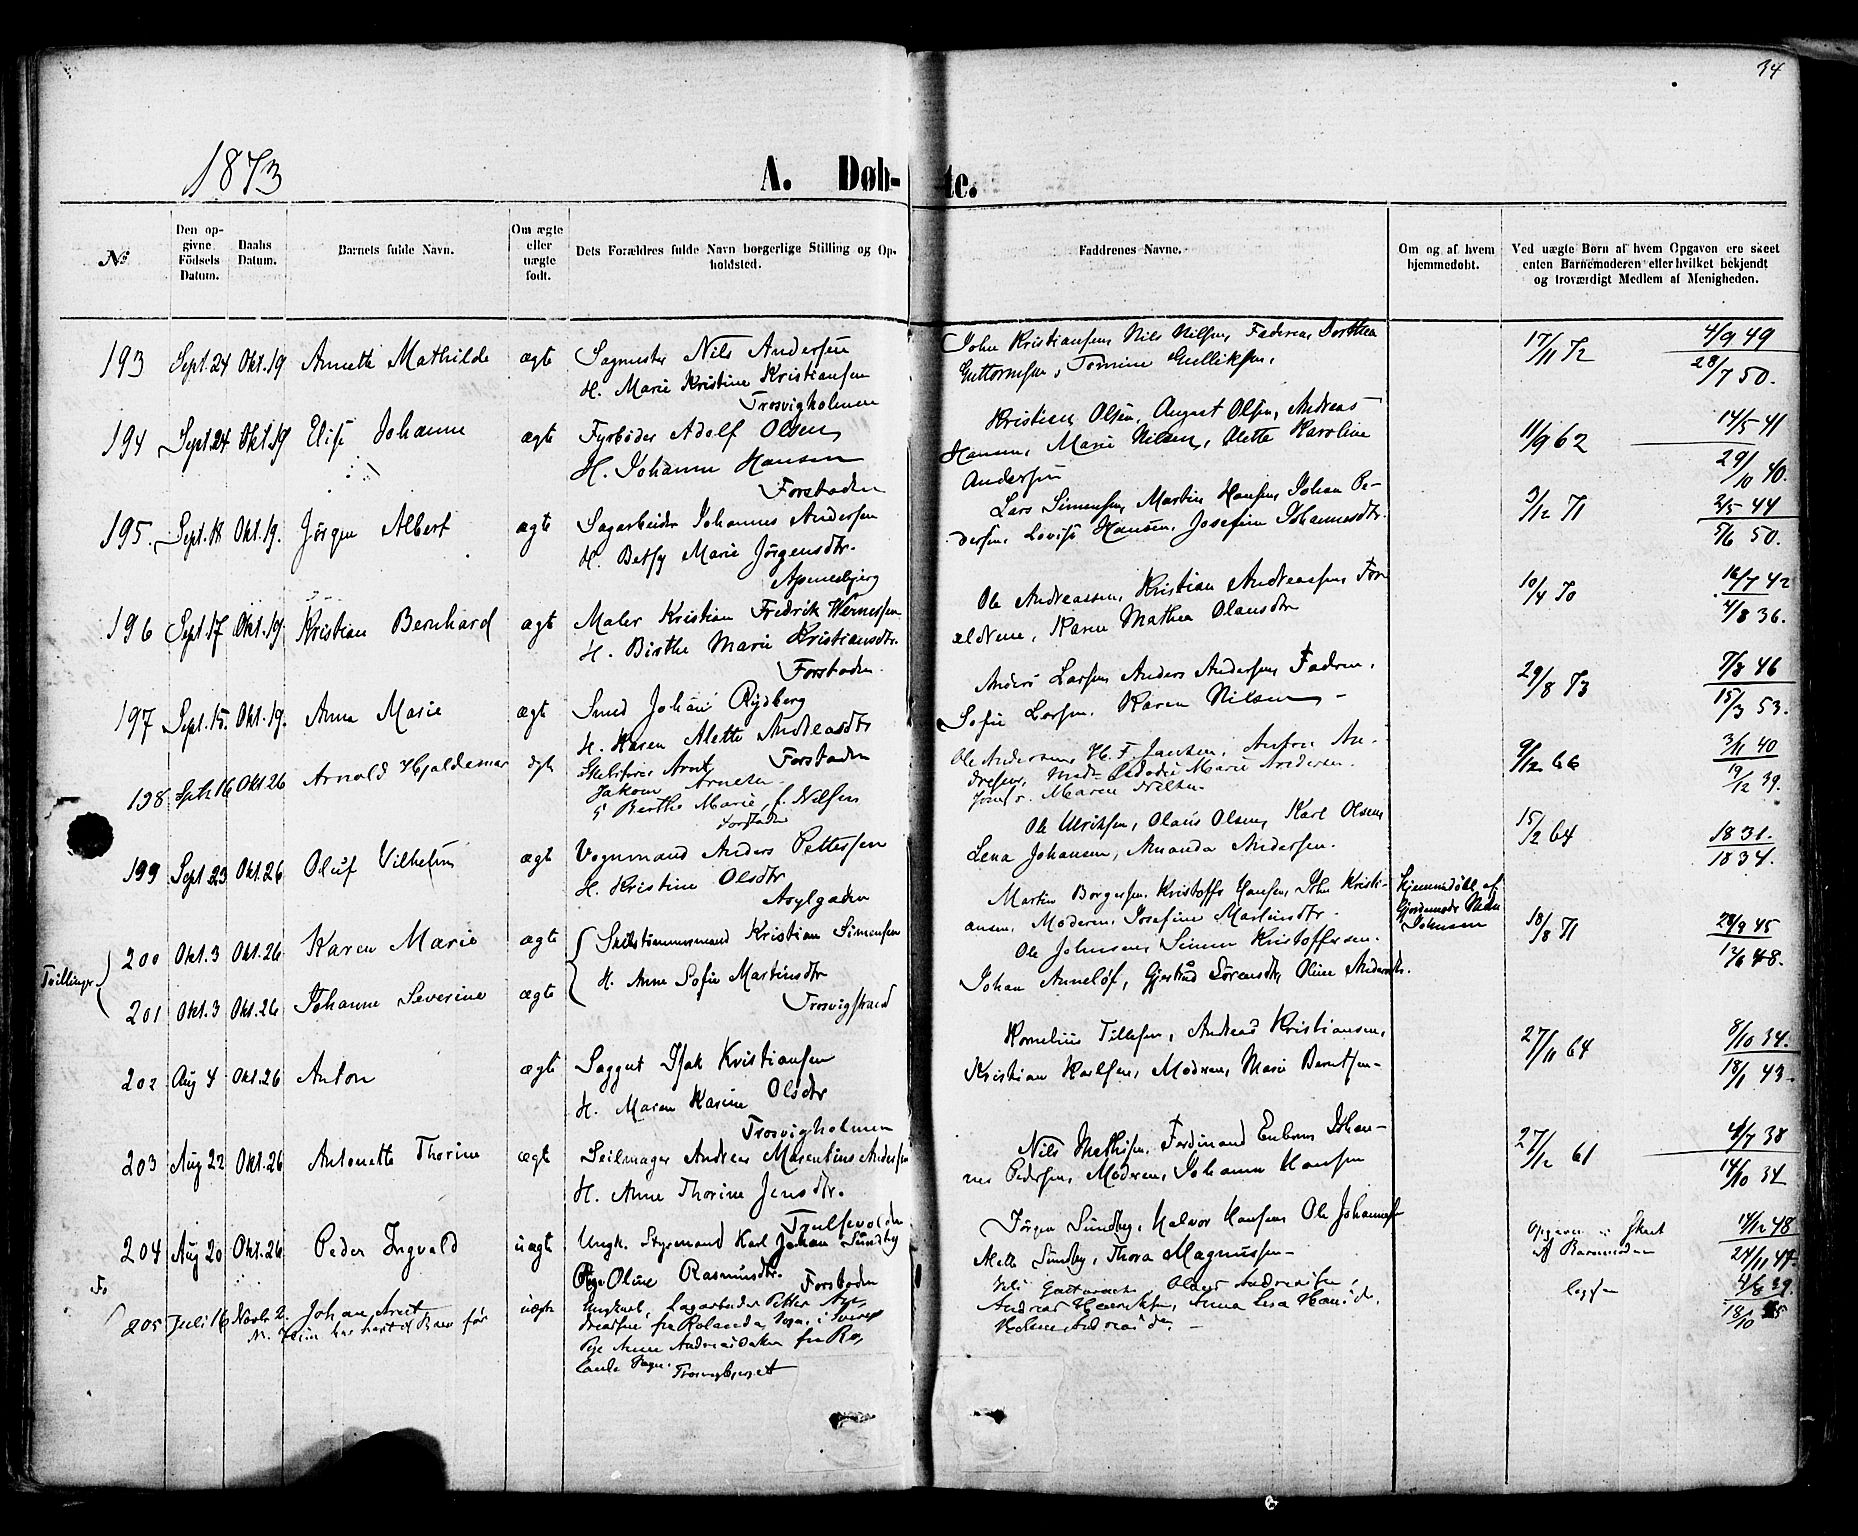 34
1873
A. Døb-te.
No
Den opgivne Fødsels Datum.
Daabs Datum.
Barnets fulde Navn.
Om ægte eller uægte født.
Dets Forældres fulde Navn borgerlige Stilling og Opholdsted.
Faddrenes Navne.
Om og af hvem hjemmedøbt.
Ved uægte Børn af hvem Opgaven ere skeet enten Barnemoderen eller hvilket bekjendt og troværdigt Medlem af Menigheden.
193 Sept. 24 Okt. 19 Annette Mathilde ægte Sagmester Nils Andersen
H. Marie Kristine Kristiansen
Trosvigholmen
John Kristiansen, Nils Nilsen, Faderen, Dorthea
Guttormsen, Tomine Gulliksen.
17/11 72
4/9 49
28/7 50.
194 Sept. 24 Okt. 19 Elise Johanne ægte Fyrbøder Adolf Olsen
H. Johanne Hansen
Forstaden
Kristian Olsen, August Olsen, Andreas
Hansen, Marie Nilsen, Olette Karoline
Andersen
11/9 62
14/5 41
29/10 40.
195. Sept. 18 Okt. 19. Jørgen Albert ægte Sagarbeider Johannes Andersen
H. Betsy Marie Jørgensdtr.
Apenesbjerg
Lars Simensen, Martin Hansen, Johan Pe-
dersen, Lovise Hansen, Josefine Johannesdtr.
3/12 71
2/5 44
5/6 50.
196 Sept. 17 Okt. 19 Kristian Bernhard ægte Maler Kristian Fredrik Wernersen
H. Birthe Marie Kristiansdtr.
Forstaden.
Ole Andreassen, Kristian Andreassen, For
ældrene, Karen Mathea Olausdtr
10/4 70
16/7 42
4/8 36.
197 Sept. 15. Okt. 19. Anna Marie ægte Smed Johan Rydberg
H. Karen Alette Andreasdtr
Forstaden
Anders Larsen, Anders Andersen, Faderen,
Sofie Larsen, Karen Nilsen
29/8 73
7/8 46
15/3 53.
198 Sept. 16 Okt. 26 Arnold Hjaldemar ægte Arnt
Jakob Arnesen
Berthe Marie f. Nilsen
Forstaden
Ole Andersen, H. F. Jansen, Anton An-
dresen, Marie Andersen.
Maren Nilsen
9/12 66
3/11 40
19/12 39.
199 Sept 23 Okt. 26 Oluf Vilhelm ægte Vognmand Anders Pettersen
H. Kristine Olsdtr
Asylgaden
Ole Ulriksen, Olaus Olsen, Karl Olsen,
Lena Johansen, Amanda Andersen.
15/2 64
1831.
1834.
Tvillinger
200 Okt. 3 Okt. 26 Karen Marie ægte Kristian Simensen
H. Anne Sofie Martinsdtr
Trosvigstrand
Martin Borgersen, Kristoffer Hansen, John Kristi-
ansen, Moderen, Josefine Martinsdtr.
hjemmedøbt af
Gjordemoder
Johnsen
18/8 71
28/9 45
17/6 48.
201 Okt. 3 Okt. 26 Johanne Severine ægte
Ole Johnsen, Simen Kristoffersen.
Johan Anneløf, Gjertrud Sørensdtr, Oline Andersdtr.
202 Aug 4 Okt. 26 Anton ægte Saggut Isak Kristiansen
H. Maren Karine Olsdtr
Trosvigholmen
Kornelius Tillesen, Andreas Kristiansen,
Kristian Karlsen, Moderen, Marie Berntsen
27/11 64
8/10 34.
18/1 43
203 Aug 22 Okt. 26 Antonette Thorine ægte Seilmager Andreas Marentius Andersen
H. Anne Thorine Jensdtr.
Nils Mathisen, Ferdinand Johan-
nes Pedersen, Moderen, Johanne Hansen
27/12 61
4/7 38
14/10 34
204 Aug 20 Okt. 26 Peder Ingvald uægte Ungk. Styrmand Karl Johan Sundby
Pige Oline Rasmusdtr. Forstaden
Jørgen Sundby, Halvor Hansen, Ole Johannes
Mette Sundby, Thora Magnussen
Opgaven Skeet
af Barnemoderen
14/12 48
24/11 47
205 Juli 16 Novb. 2. Johan Arnt uægte Ungkarl, Sagarbeider Petter An-
dreasen fra Rolands Sogn i Sverige
Pige Anne Andreasdatter fra Ro-
lands Sogn. Trosvigberget
har havt et Barn før
Olaus Andreasen,
Andreas Henriksen, Anna Lisa
ligesaa
4/8 39.
18/10